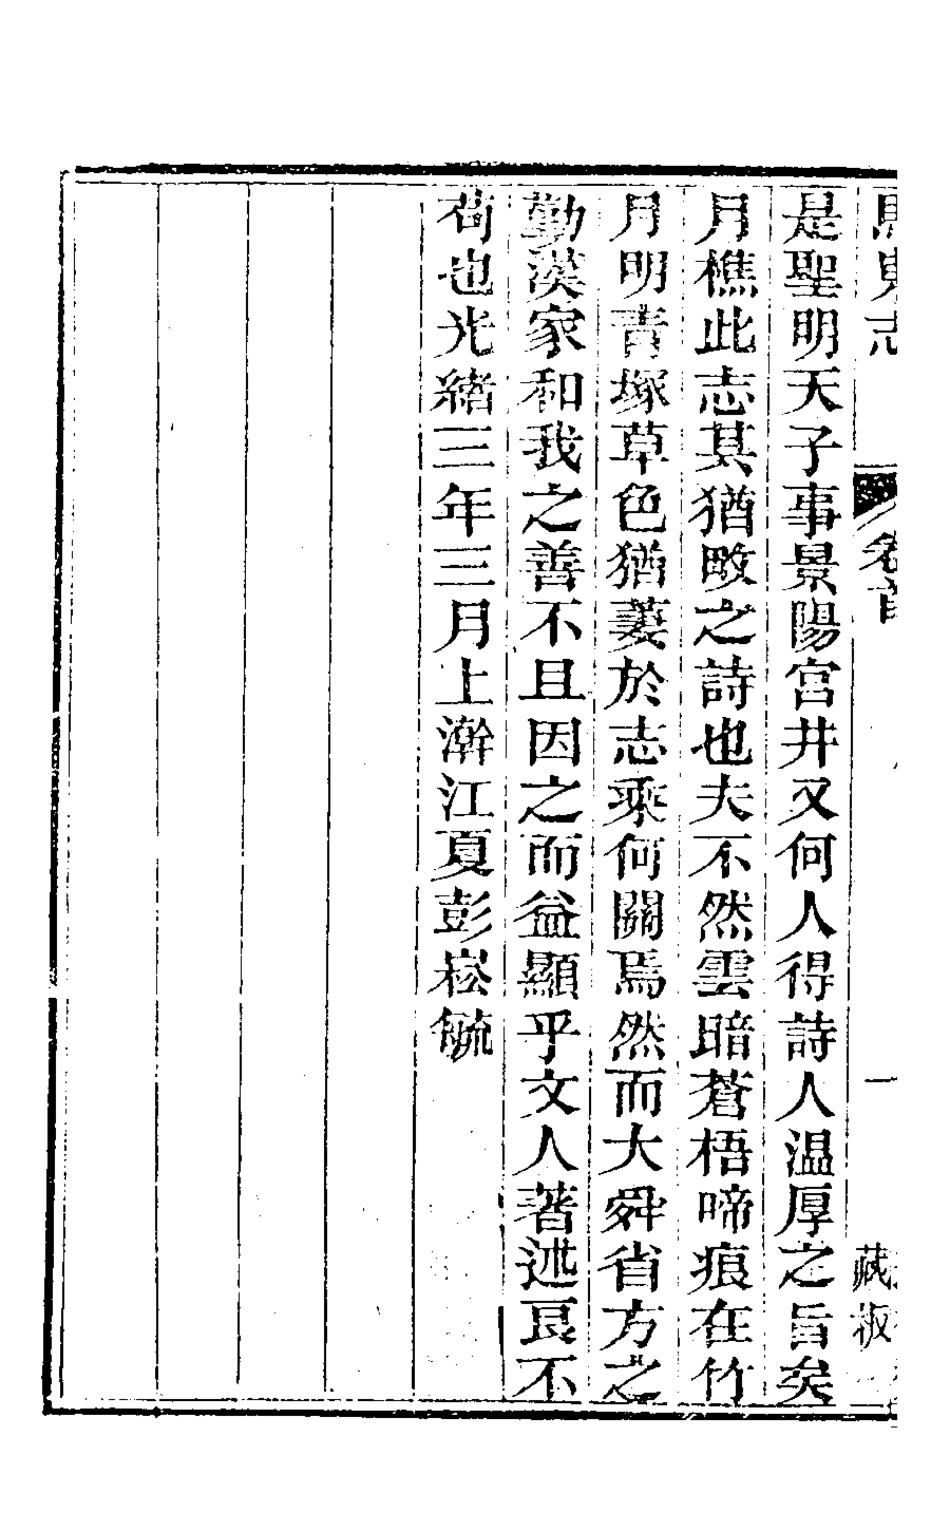 志
卷首
一
藏板
是聖明天子事景陽宮井又何人得詩人温厚之旨矣
月樵此志其猶畋之詩也夫不然雲暗蒼梧啼痕在竹
月明青塚草色猶萋於志乘何關焉然而大舜省方之
勤漢家和我之善不且因之而益顯乎文人著述良不
苟也光緒三年三月上澣江夏彭崧毓